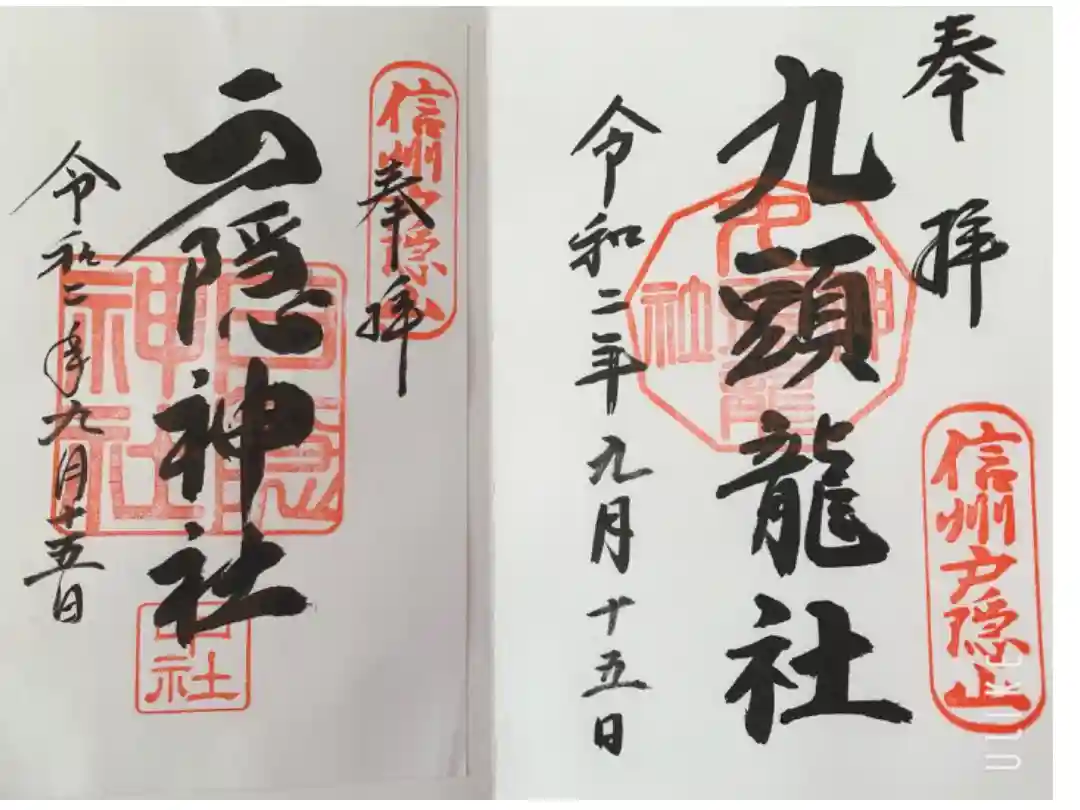 奉拝
信州戸隠山
九頭龍社
令和二年九月十五日
信州戸隠山
奉拝
戸隠神社
戸隠神社
中社
令和二年九月十五日
ULIKE